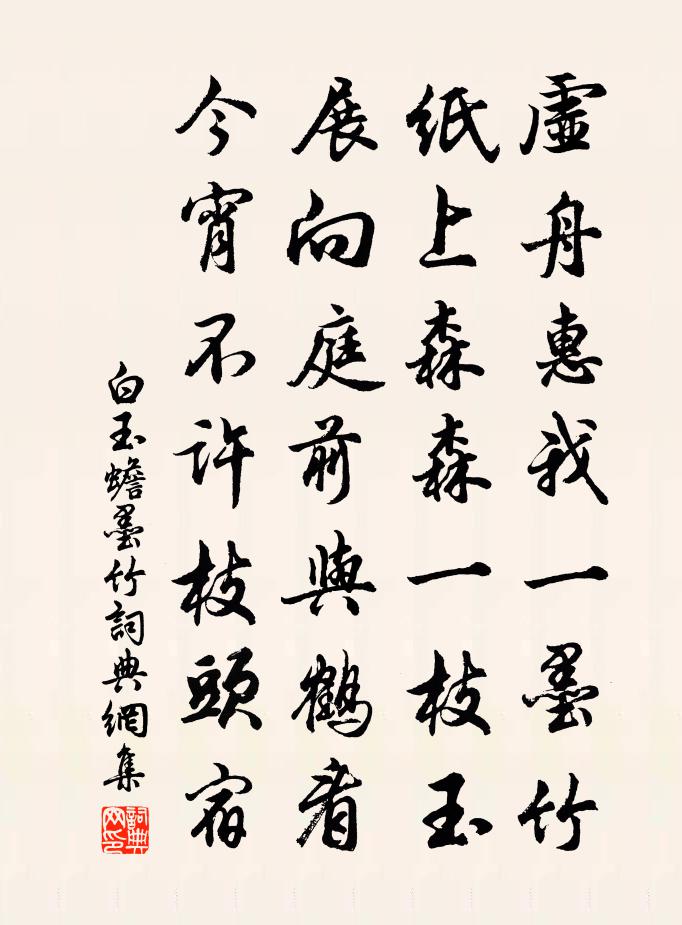 虛舟惠我一墨竹
紙上森森一枝玉
展向庭前與鶴看
今宵不許枝頭宿
白玉蟾墨竹詞典網集
詞典網印